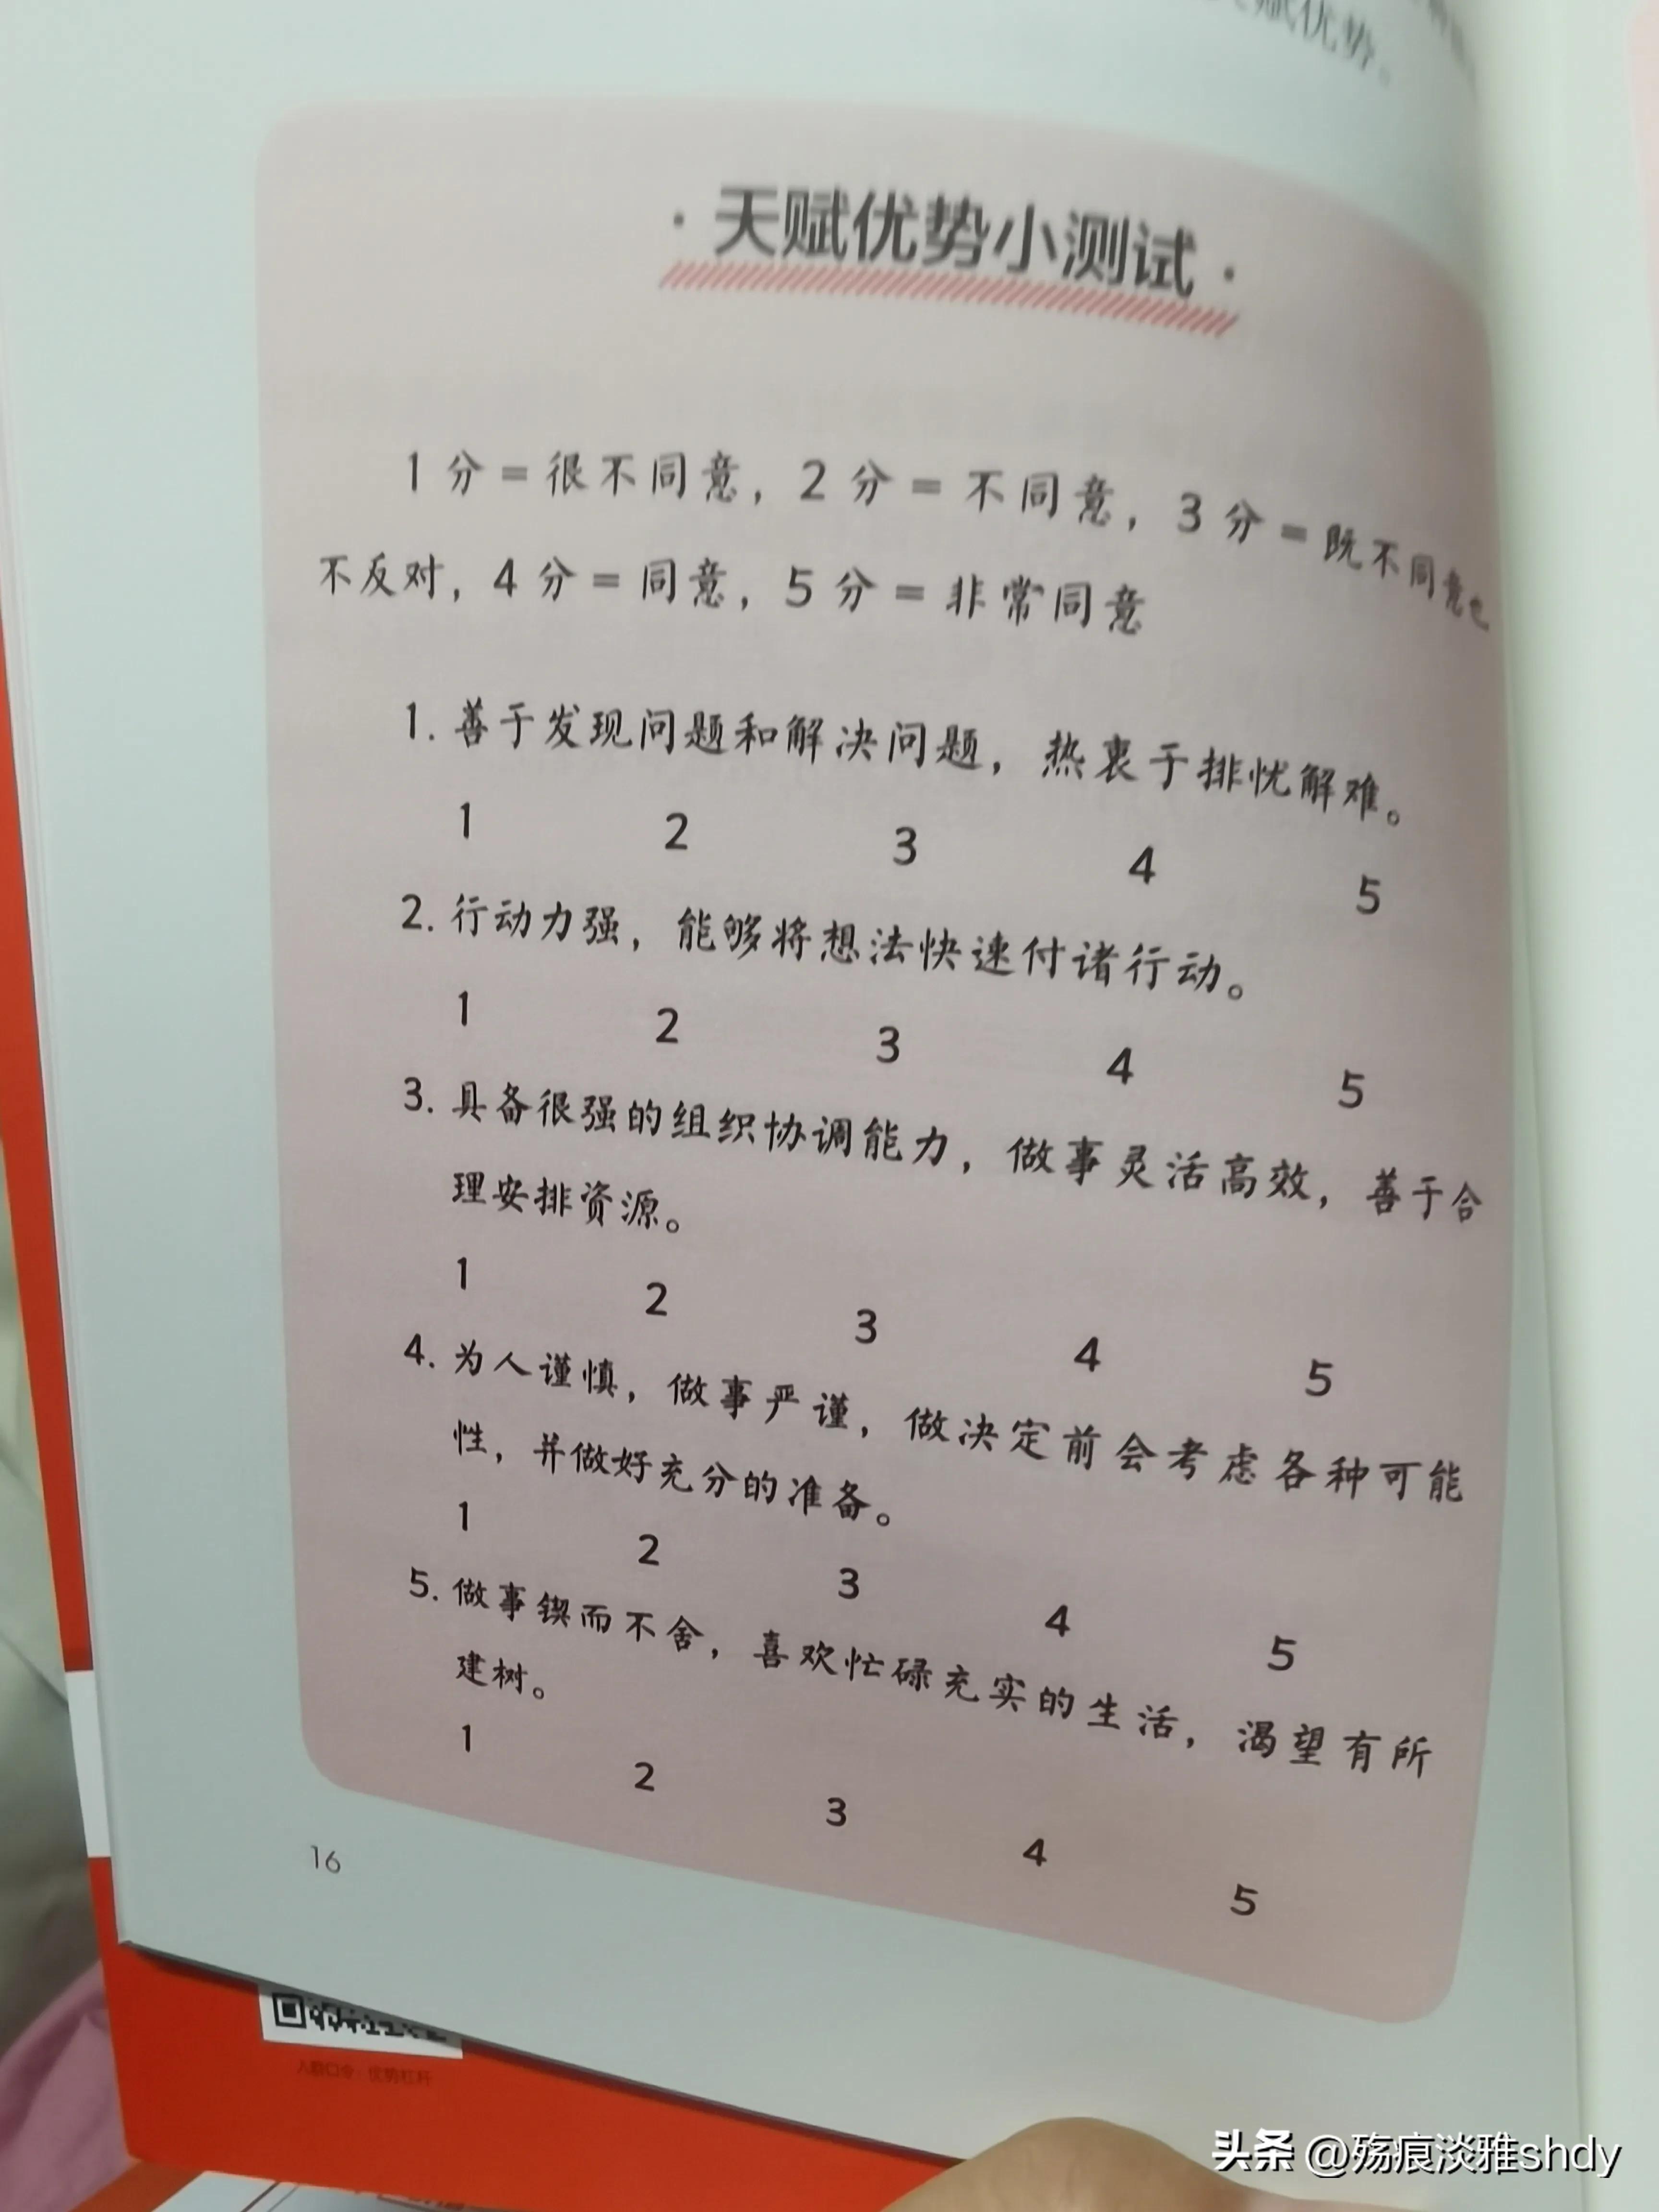 赋优势。
·天赋优势小测试·
1分=很不同意，2分=不同意，3分=既不同意也
不反对，4分=同意，5分=非常同意
1. 善于发现问题和解决问题，热衷于排忧解难。
1 2 3 4 5
2. 行动力强，能够将想法快速付诸行动。
1 2 3 4 5
3. 具备很强的组织协调能力，做事灵活高效，善于合
理安排资源。
1 2 3 4 5
4. 为人谨慎，做事严谨，做决定前会考虑各种可能
性，并做好充分的准备。
1 2 3 4 5
5. 做事锲而不舍，喜欢忙碌充实的生活，渴望有所
建树。
1 2 3 4 5
16
入群口令：优势杠杆
头条 @殇痕淡雅shdy